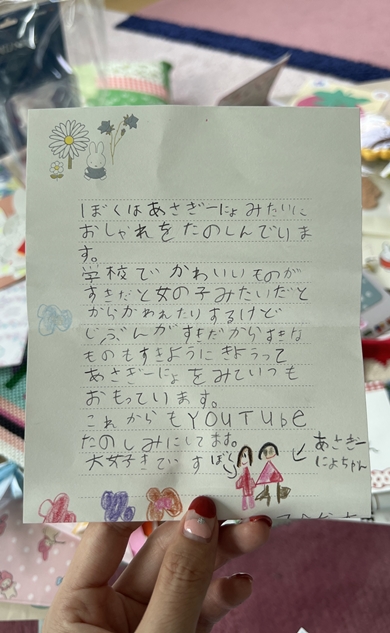 ぼくはあさぎーにょみたいに
おしゃれをたのしんでいま
す。
学校でかわいいものが
すきだと女の子みたいだと
からかわれたりするけど
じぶんがすきだからすきな
ものもすきようにきようって
あさぎーにょをみていつも
おもっています。
これからもYOUTUbe
たのしみにしてます。
大好きでいす
ぼく
あさぎー
にょちゃん